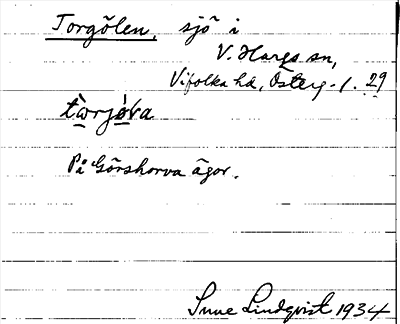 Torgölen, sjö i
V. Hargs sn,
Vifolka hd, Österg. l. 29
tòrjǿra
På Görshorva ägor.
Sune Lindqvist 1934